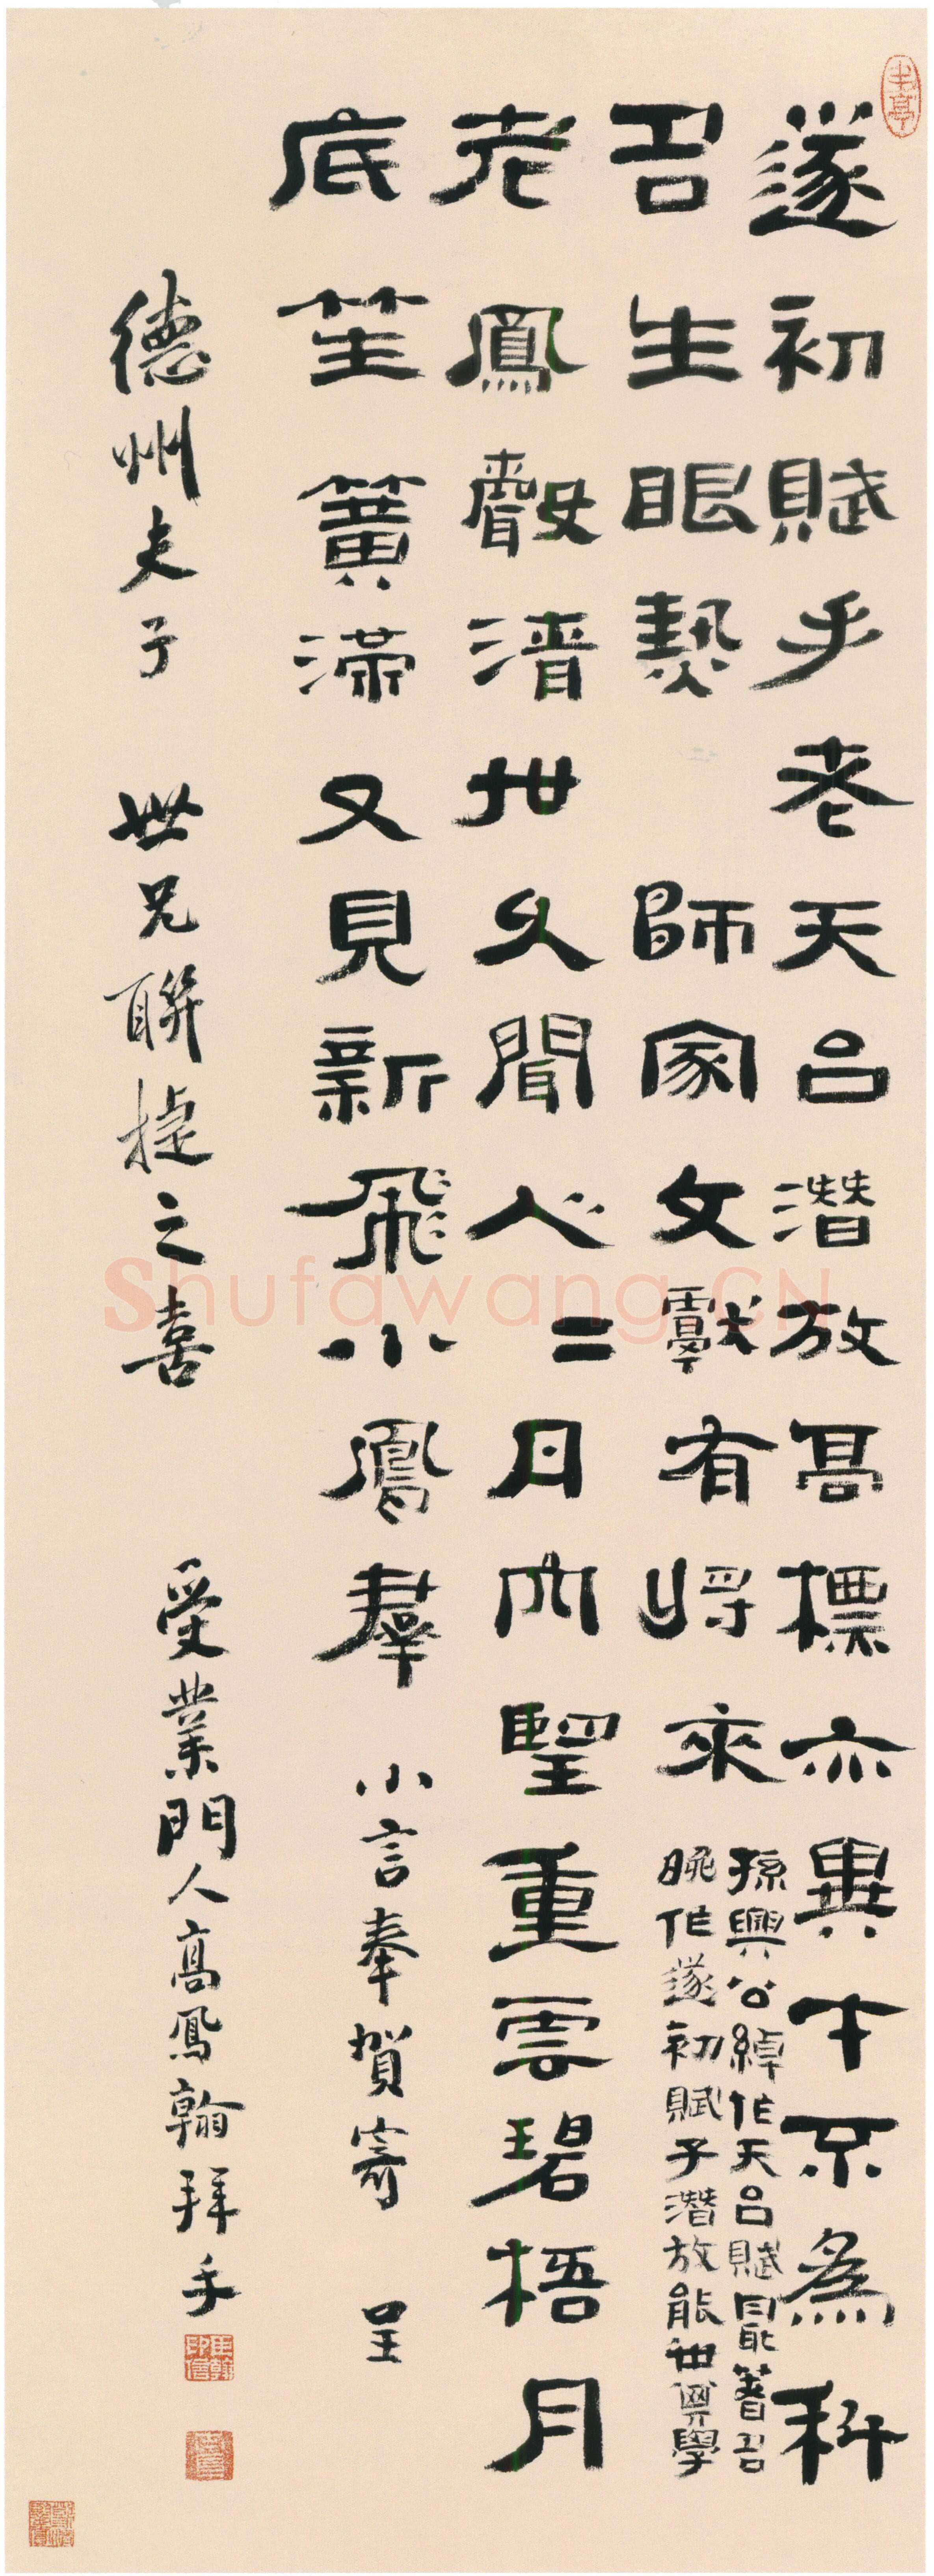 半亭
遂初賦手老天台潛放高標亦異才不為科
名生眼熱 師家文獻有將來
孫興公綽作天台賦最著名
晚作遂初賦子潛放能世其學
老鳳聲清世久聞人〻丹穴望重雲碧梧月
底笙簧滿又見新飛小鳳羣 小言奉賀寄 呈
德州夫子 世兄聯捷之喜 受業門人高鳳翰拜手
Shufawang.CN